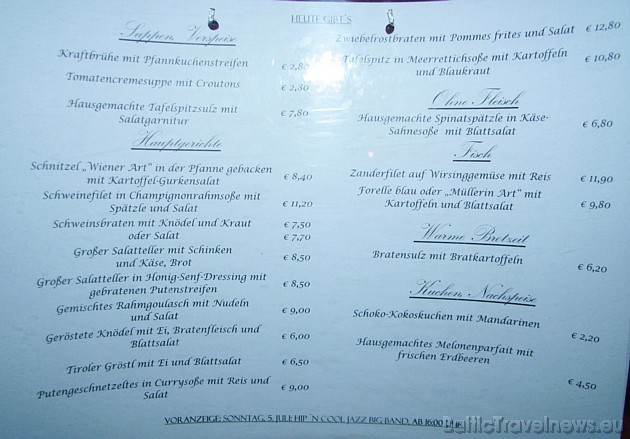 HEUTE GIBT´S
Suppen, Vorspeise
Kraftbrühe mit Pfannkuchenstreifen € 2,80
Tomatencremesuppe mit Croutons € 2,80
Hausgemachte Tafelspitzsulz mit € 7,80
Salatgarnitur
Hauptgerichte
Schnitzel „Wiener Art" in der Pfanne gebacken € 8,40
mit Kartoffel-Gurkensalat
Schweinefilet in Champignonrahmsoße mit € 11,20
Spätzle und Salat
Schweinsbraten mit Knödel und Kraut € 7,50
oder Salat € 7,70
Großer Salatteller mit Schinken € 8,50
und Käse, Brot
Großer Salatteller in Honig-Senf-Dressing mit € 8,50
gebratenen Putenstreifen
Gemischtes Rahmgoulasch mit Nudeln € 9,00
und Salat
Geröstete Knödel mit Ei, Bratenfleisch und € 6,00
Blattsalat
Tiroler Gröstl mit Ei und Blattsalat € 6,50
Putengeschnetzeltes in Currysoße mit Reis und € 9,00
Salat
Zwiebelrostbraten mit Pommes frites und Salat € 12,80
Tafelspitz in Meerrettichsoße mit Kartoffeln € 10,80
und Blaukraut
Ohne Fleisch
Hausgemachte Spinatspätzle in Käse- € 6,80
Sahnesoße mit Blattsalat
Fisch
Zanderfilet auf Wirsinggemüse mit Reis € 11,90
Forelle blau oder „Müllerin Art" mit € 9,80
Kartoffeln und Blattsalat
Warme Brotzeit
Bratensulz mit Bratkartoffeln € 6,20
Kuchen, Nachspeise
Schoko-Kokoskuchen mit Mandarinen € 2,20
Hausgemachtes Melonenparfait mit
frischen Erdbeeren € 4,50
VORANZEIGE: SONNTAG, 5. JULI: HIP ´N COOL JAZZ BIG BAND, AB 16:00 UHR
BalticTravelnews.eu